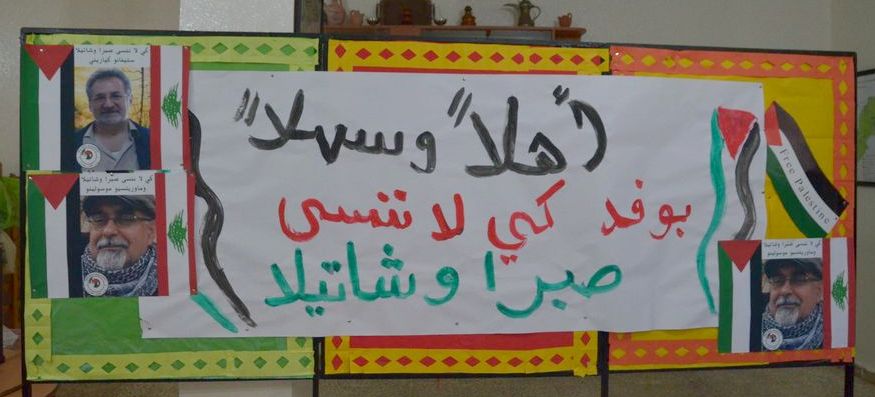 أهلاً وسهلاً
بوفد كي لا ننسى
صبرا وشاتيلا
كي لا ننسى صبرا وشاتيلا
ستيفانو كياريني
كي لا ننسى صبرا وشاتيلا
وماوريتسيو موسولينو
Free Palestine
كي لا ننسى صبرا وشاتيلا
وماوريتسيو موسولينو